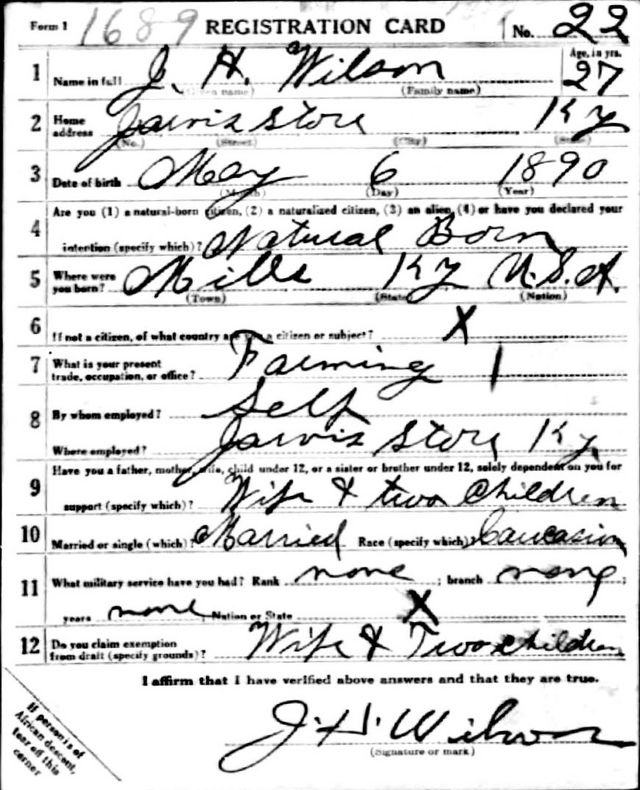 Form 1 1689 REGISTRATION CARD No. 22
1 Name in full J. H. Wilson Age, in yrs. 27
(Given name) (Family name)
2 Home address Jarvis Store Ky
(No.) (Street) (City) (State)
3 Date of birth May 6 1890
(Month) (Day) (Year)
4 Are you (1) a natural-born citizen, (2) a naturalized citizen, (3) an alien, (4) or have you declared your
intention (specify which)? Natural Born
5 Where were you born? Mills Ky U.S.A.
(Town) (State) (Nation)
6 If not a citizen, of what country are you a citizen or subject? X
7 What is your present trade, occupation, or office? Farming
8 By whom employed? Self
Where employed? Jarvis Store Ky
9 Have you a father, mother, wife, child under 12, or a sister or brother under 12, solely dependent on you for
support (specify which)? Wife & two Children
10 Married or single (which)? Married Race (specify which)? Caucasion
11 What military service have you had? Rank none ; branch none ;
years none ; Nation or State X
12 Do you claim exemption from draft (specify grounds)? Wife & Two children
I affirm that I have verified above answers and that they are true.
J. H. Wilson
(Signature or mark)
If person is of
African descent,
tear off this
corner